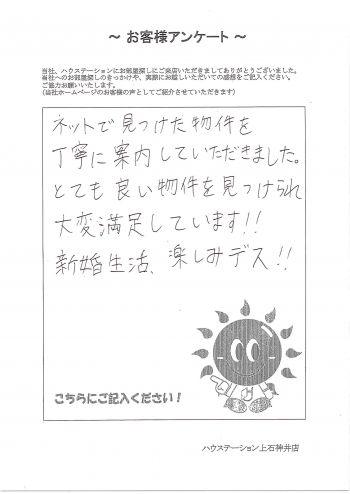 ～ お客様アンケート ～
当社、ハウステーションにお部屋探しにご来店いただきましてありがとうございました。
当社へのお部屋探しのきっかけや、実際にお越しいただいての感想をご記入ください。
ご協力お願いいたします。
(当社ホームページのお客様の声としてご紹介させていただきます)
ネットで見つけた物件を
丁寧に案内していただきました。
とても良い物件を見つけられ
大変満足しています!!
新婚生活、楽しみデス!!
こちらにご記入ください!
ハウステーション上石神井店